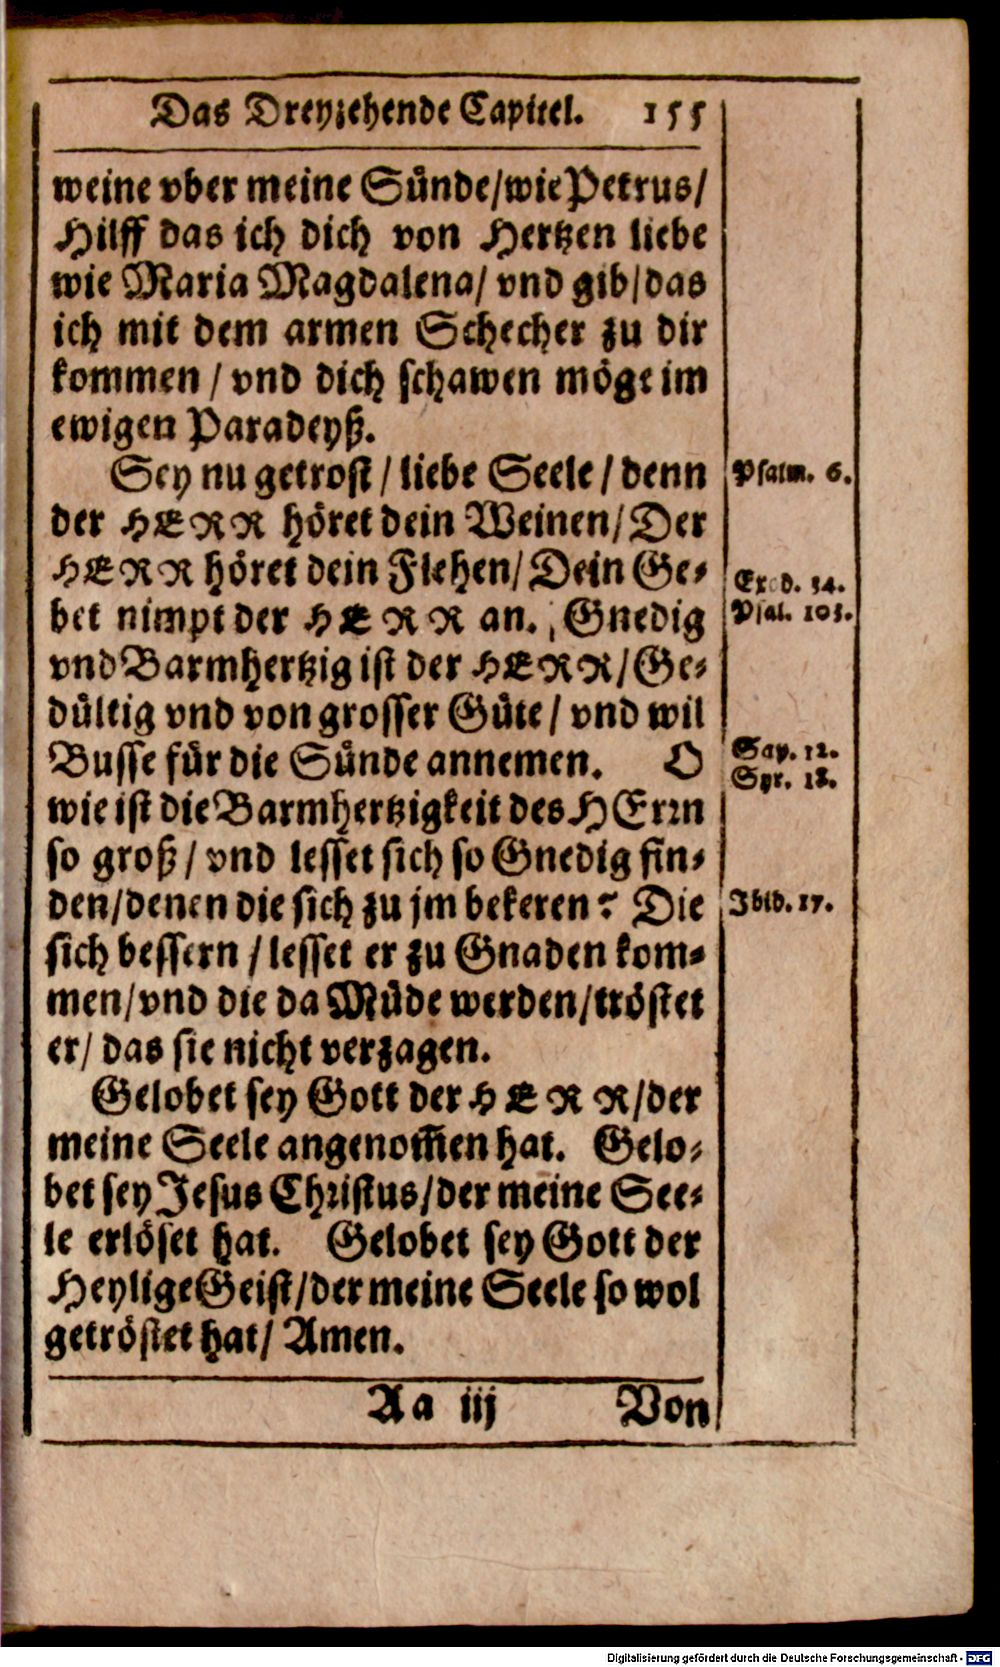 Das Dreyzehende Capitel. 155
weine vber meine Sünde/wie Petrus/
Hilff das ich dich von Hertzen liebe
wie Maria Magdalena/ vnd gib/das
ich mit dem armen Schecher zu dir
kommen / vnd dich schawen möge im
ewigen Paradeyß.
Sey nu getrost / liebe Seele / denn
der HERR höret dein Weinen/ Der
HERR höret dein Flehen/ Dein Ge-
bet nimpt der HERR an. Gnedig
vnd Barmhertzig ist der HERR/ Ge-
dültig vnd von grosser Güte / vnd wil
Busse für die Sünde annemen. O
wie ist die Barmhertzigkeit des HErrn
so groß / vnd lesset sich so Gnedig fin-
den/denen die sich zu jm bekeren? Die
sich bessern / lesset er zu Gnaden kom-
men/vnd die da Müde werden/tröstet
er/ das sie nicht verzagen.
Gelobet sey Gott der HERR/der
meine Seele angenom̃en hat. Gelo-
bet sey Jesus Christus/der meine See-
le erlöset hat. Gelobet sey Gott der
Heylige Geist/der meine Seele so wol
getröstet hat/ Amen.
Aa iij Von
Psalm. 6.
Exod. 34.
Psal. 103.
Sap. 12.
Syr. 18.
Ibid. 17.
Digitalisierung gefördert durch die Deutsche Forschungsgemeinschaft - DFG